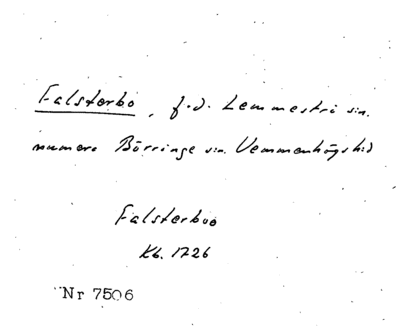 Falsterbo, f.d. Lemmeströ sn.
numera Börringe sn. Vemmenhögs hd
Falsterboo
Kb. 1726
Nr 7506